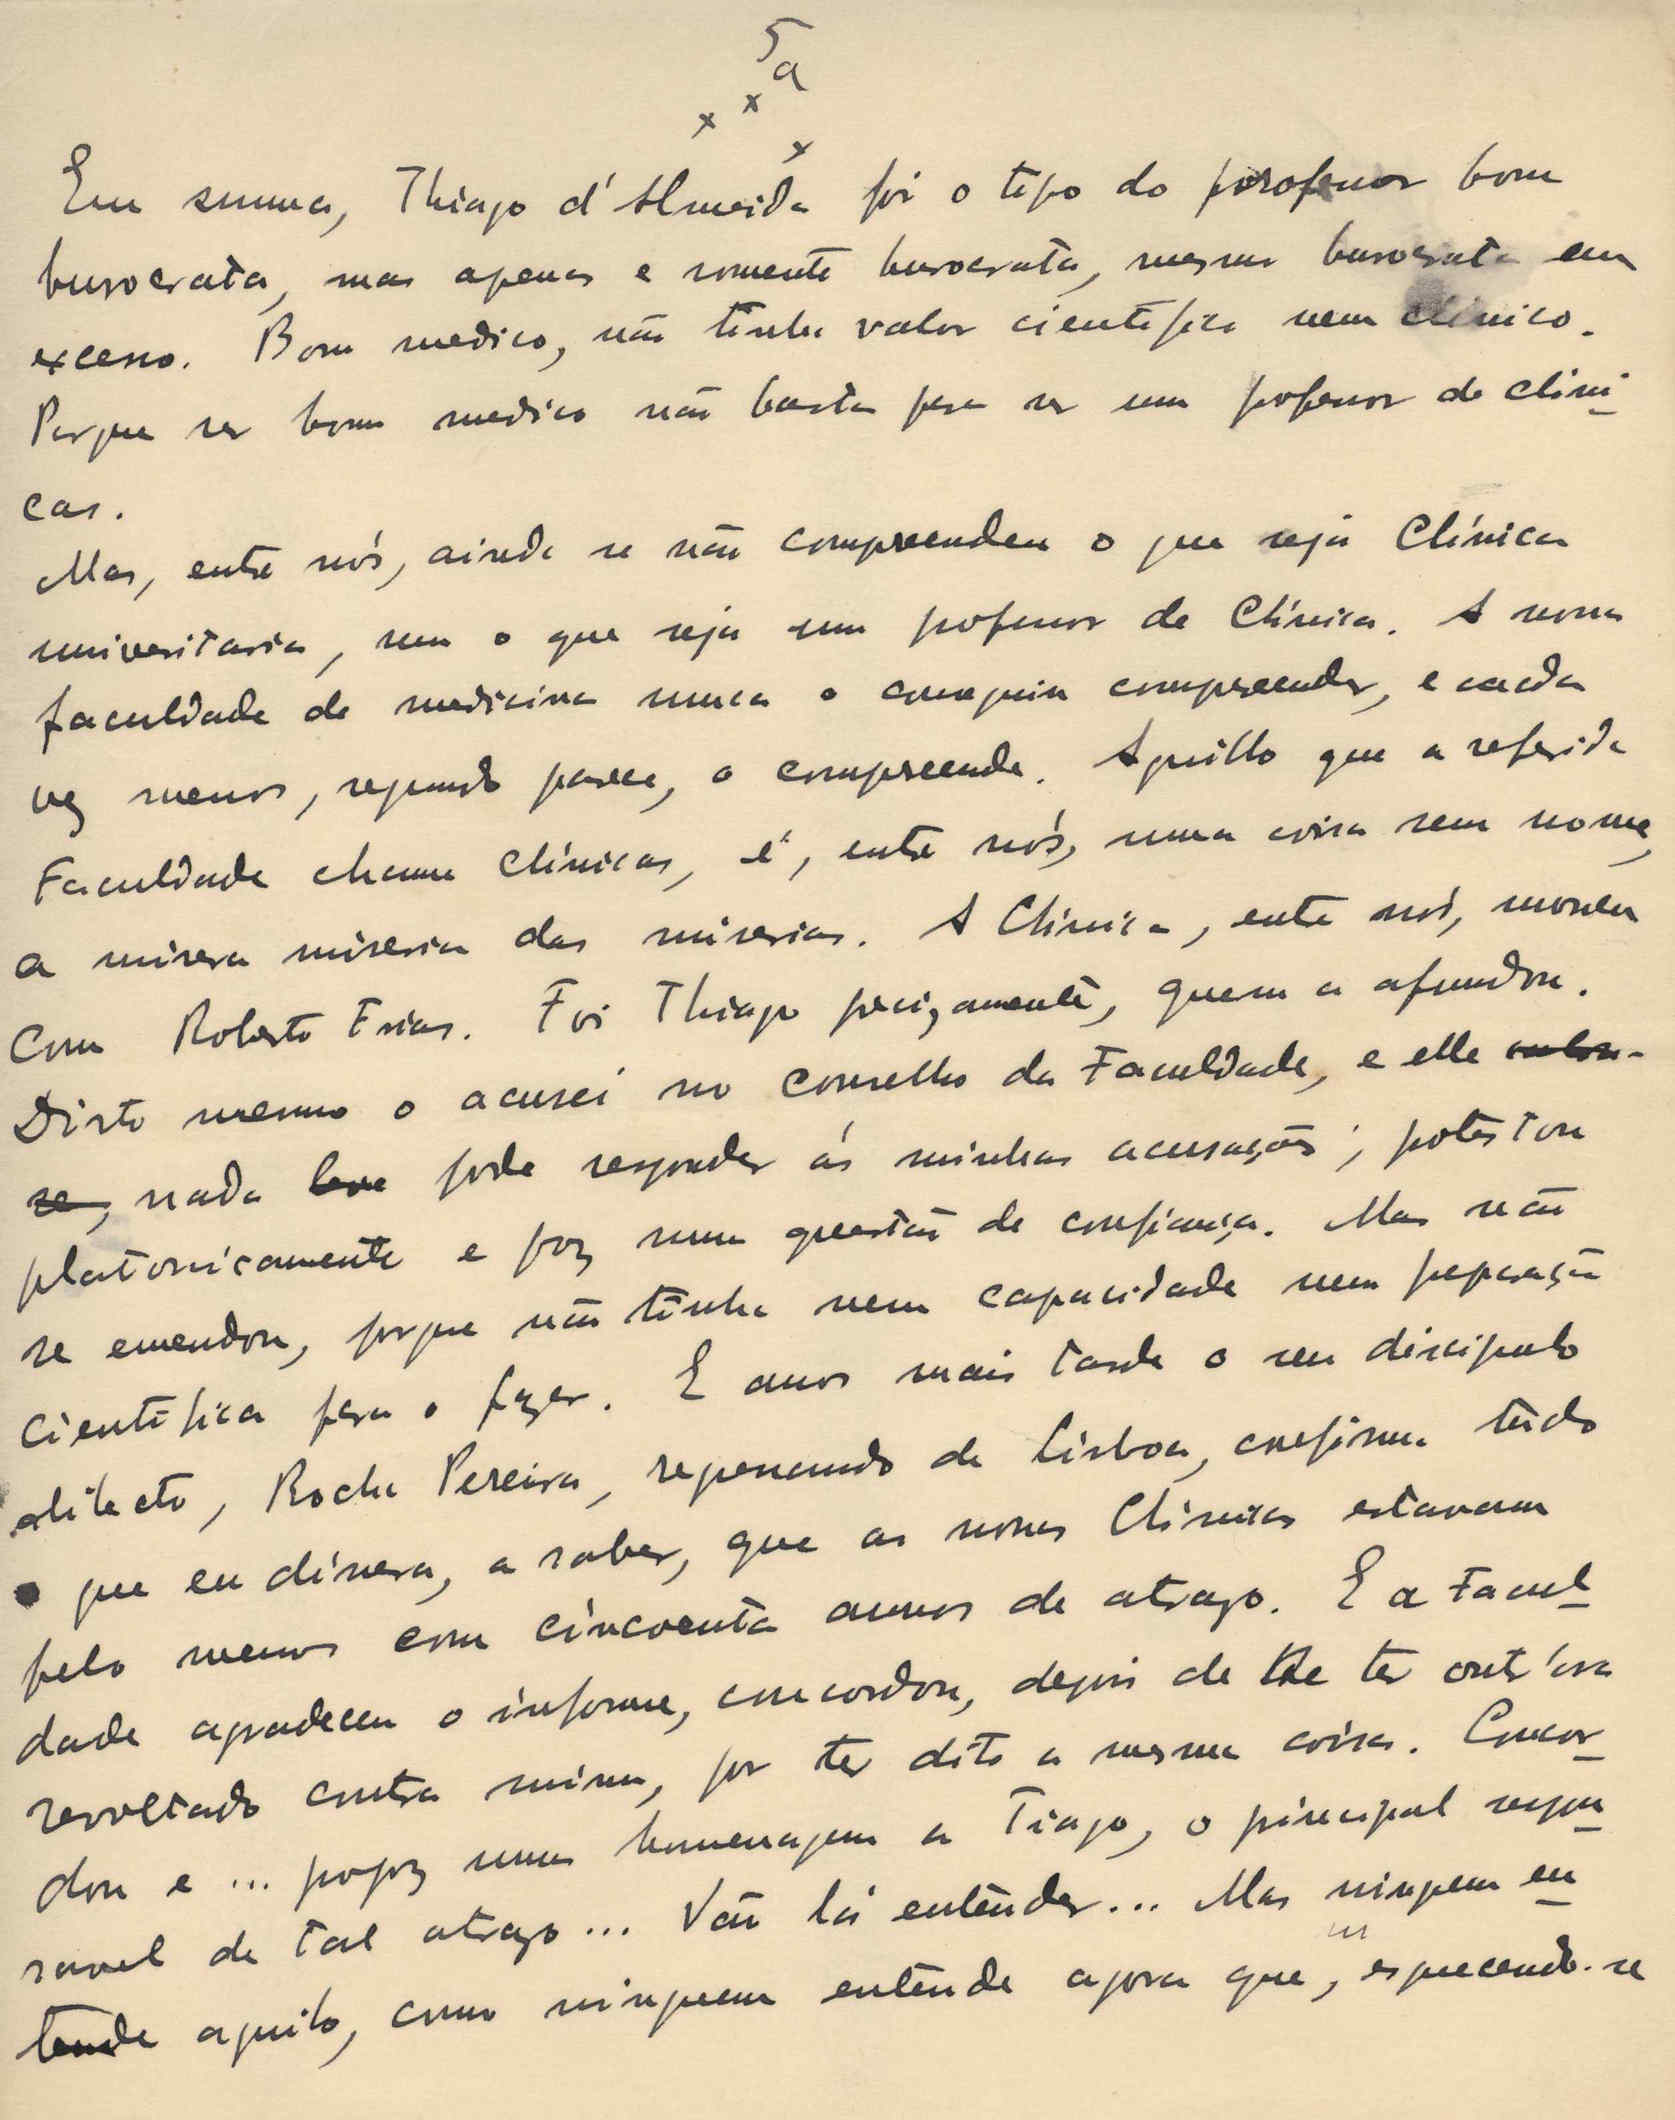 5a
x x x
Em summa, Thiago d'Almeida foi o tipo do professor bom
burocrata, mas apenas e somente burocrata, mesmo burocrata em
excesso. Bom medico, não tinha valor cientifico nem clinico.
Porque ser bom medico não basta para ser um professor de clini-
cas.
Mas, entre nós, ainda se não comprendeu o que seja Clínica
universitaria, nem o que seja um professor de Clínica. A nossa
faculdade de medicina nunca o conseguiu compreender, e cada
vez menos, segundo parece, o compreende. Aquillo que a referida
Faculdade chama Clínicas, é, entre nós, uma coisa sem nome,
a misera miseria das miserias. A Clínica, entre nós, morreu
com Roberto Frias. Foi Thiago precizamente, quem a afundou.
Disto mesmo o acusei no conselho da Faculdade, e elle
se, nada pode responder ás minhas acusações; protestou
platonicamente e poz uma questão de confiança. Mas não
se emendou, porque não tinha nem capacidade nem preparação
cientifica para o fazer. E anos mais tarde o seu discipulo
dilecto, Rocha Pereira, regressando de Lisboa, confirma tudo
o que eu dissera, a saber, que as nossas Clínicas estavam
pelo menos com cincoenta annos de atrazo. E a Facul-
dade agradeceu o informe, concordou, depois de se ter outr'ora
revoltado contra mim, por ter dito a mesma coisa. Concor-
dou e ... propoz uma homenagem a Tiago, o principal respon-
savel de tal atrazo... Vão lá entender... Mas ninguem en-
tende aquilo, como ninguem entende agora que, esquecendo-se